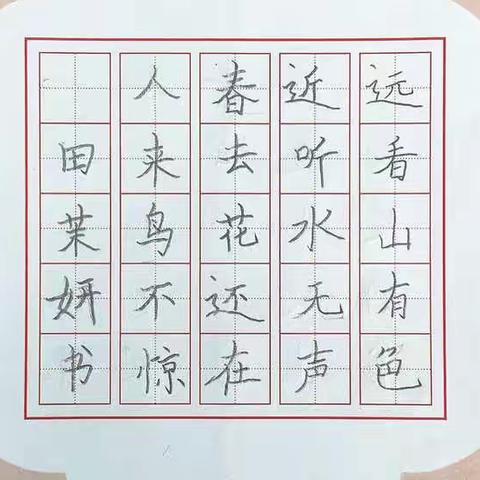 远看山有色
近听水无声
春去花还在
人来鸟不惊
田茉妍书